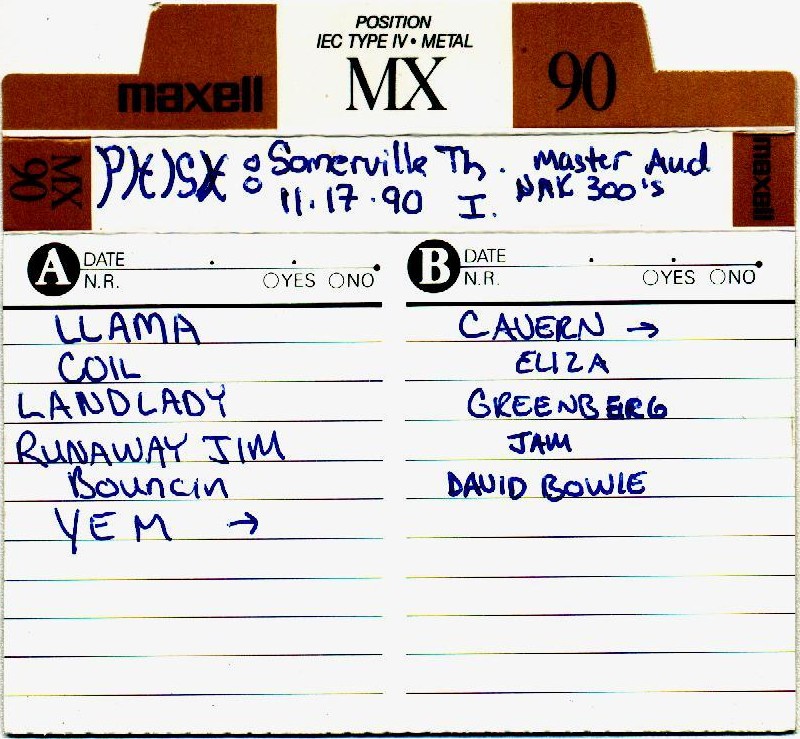 POSITION
IEC TYPE IV • METAL
maxell MX 90
MX 90
P)(t)S)( : Somerville Th. Master Aud
11·17·90 I. NAK 300's
maxell
A DATE
N.R. YES NO
LLAMA
COIL
LANDLADY
RUNAWAY JIM
Bouncin
YEM →
B DATE
N.R. YES NO
CAVERN →
ELIZA
GREENBERG
JAM
DAVID BOWIE